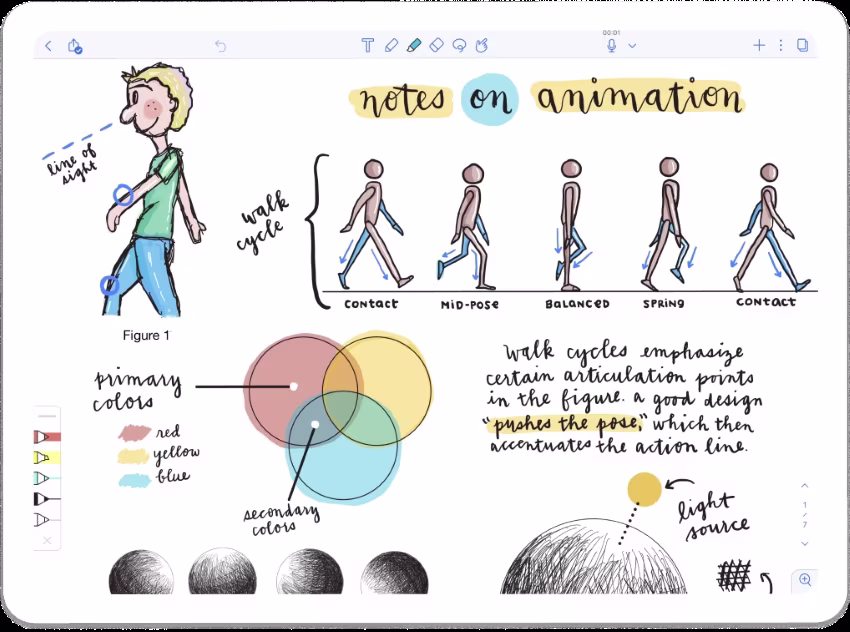 00:01
notes on animation
line of
sight
walk
cycle
CONTACT MID-POSE BALANCED SPRING CONTACT
Figure 1
primary
colors
red
yellow
blue
secondary
colors
Walk cycles emphasize
certain articulation points
in the figure. a good design
"pushes the pose," which then
accentuates the action line.
light
source
1
/
7